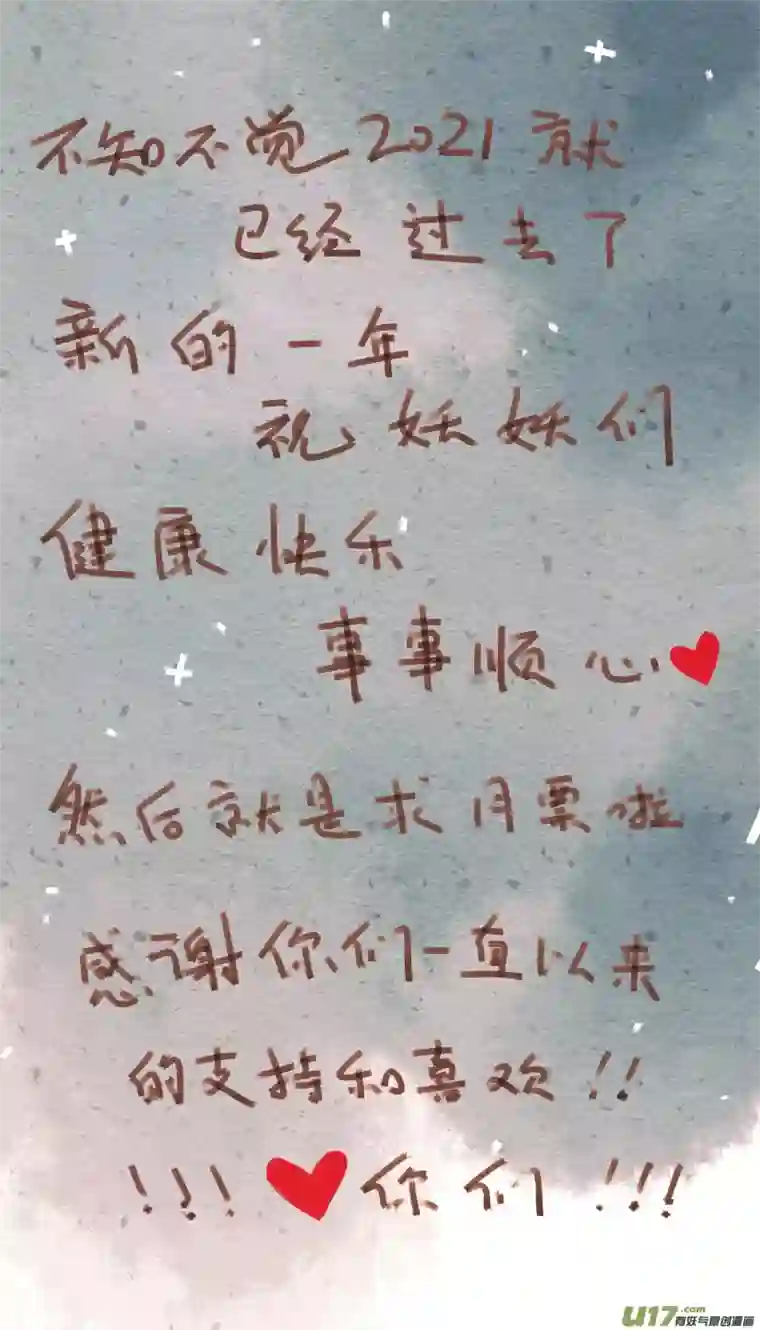 不知不觉2021就
已经过去了
新的一年
祝妖妖们
健康快乐
事事顺心
然后就是求月票啦
感谢你们一直以来
的支持和喜欢!!
!!!你们!!!
U17 有妖气原创漫画